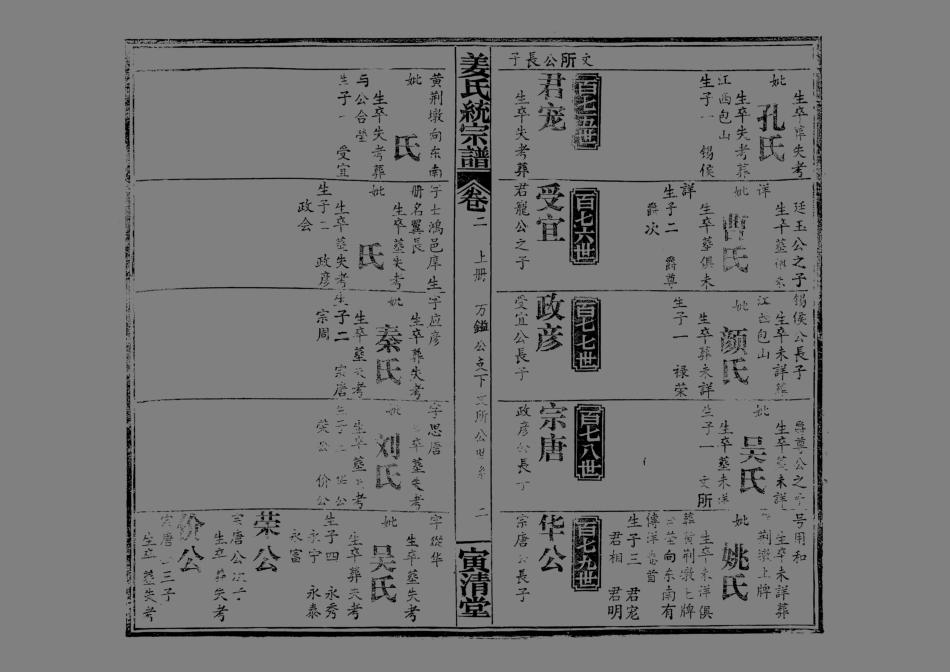 生卒葬失考
孔氏
生卒失考葬
江西包山
生子一 锡侯
廷玉公之子
详
妣曹氏
生卒墓俱未
詳
生子二 爵尊
爵次
锡侯公長子
生卒未詳葬
江西包山
妣颜氏
生卒葬未詳
生子一 禄荣
爵尊公之子
生卒墓未詳
妣吴氏
生卒墓未详
生子一 文所
号用和
生卒未詳葬
荆墩上牌
妣姚氏
生卒未洋俱
葬黄荆墩上牌
向东南有
生子三 君宠
君相 君明
文所公長子
百七五世
君宠
生卒失考葬
百七六世
受宜
君龍公之子
百七七世
政彦
受宜公長子
百七八世
宗唐
政彦公長子
百七九世
华公
宗唐公長子
姜氏統宗譜
卷二 上册 万鎰公支下文所公世系 二
寅清堂
黄荆墩向东南
妣氏
生卒失考葬
与公合塋
生子一 受宜
字士鴻邑庠生
册名翼長
生卒墓失考
妣氏
生卒墓失考
生子二 政彦
政会
字应彦
生卒葬失考
妣秦氏
生卒墓失考
生子二 宗唐
宗周
字思唐
生卒墓失考
妣刘氏
生卒墓失考
荣公 价公
字從华
生卒墓失考
妣吴氏
生卒葬失考
生子四 永秀
永宁 永泰
永富
荣公
宗唐公次子
生卒葬失考
价公
宗唐公三子
生卒墓失考